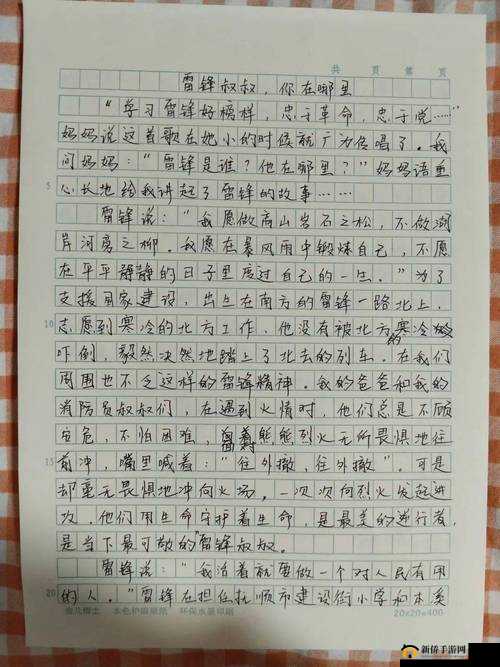 共 页 第 页
雷锋叔叔，你在哪里
“学习雷锋好榜样，忠于革命，忠于党……”
妈妈说这首歌在她小的时候就广为传唱了。我
问妈妈：“雷锋是谁？他在哪里？”妈妈语重
5 心长地给我讲起了雷锋的故事……
雷锋说：“我愿做高山岩石之松，不做湖
岸河旁之柳。我愿在暴风雨中锻炼自己，不愿
在平平静静的日子里度过自己的一生。”为了
支援国家建设，出生在南方的雷锋一路北上，
10 志愿到寒冷的北方工作，他没有被北方的寒冷
吓倒，毅然决然地踏上了北去的列车。在我们
周围也不乏这样的雷锋精神。我的爸爸和我的
消防员叔叔们，在遇到火情时，他们总是不顾
安危，不怕困难，面对熊熊烈火无所畏惧地往
15 前冲，嘴里喊着：“往外撤，往外撤”。可是
却毫无畏惧地冲向火场，一次次向烈火发起进
攻，他们用生命守护着生命，是最美的逆行者，
是当下最可敬的雷锋叔叔。
雷锋说：“我活着就要做一个对人民有用
20 的人。”雷锋在担任抚顺市建设街小学和本溪
本色护眼纸 环保水墨印刷
20×20=400
新侨手游网